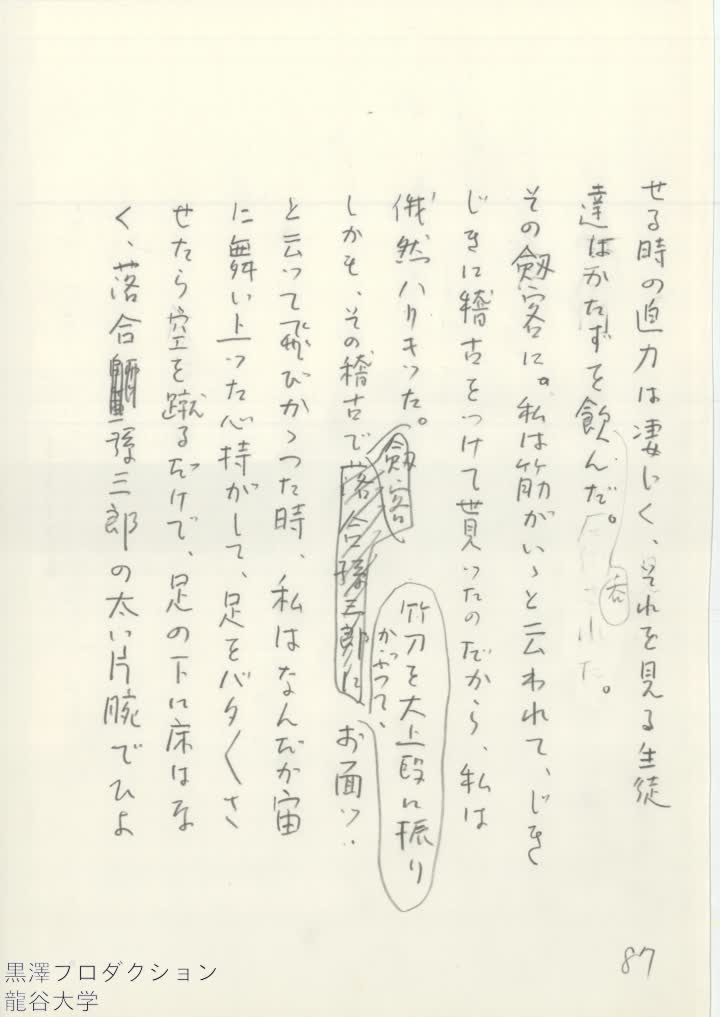 せる時の迫力は凄じく、それを見る生徒
達はかたずを飲んだ。
呑
その剱客に。私は筋がいゝと云われて、じき
じきに稽古をつけて貰ったのだから、私は
俄然ハリキった。
剱客
竹刀を大上段に振り
かぶって、
しかも、その稽古で落合孫三郎に お面ッ‥
と云って飛びかゝつた時、私はなんだか宙
に舞い上った心持がして、足をバタ〱さ
せたら空を蹴るだけで、足の下に床はな
く、落合孫三郎の太い片腕でひよ
87
黒澤プロダクション
龍谷大学